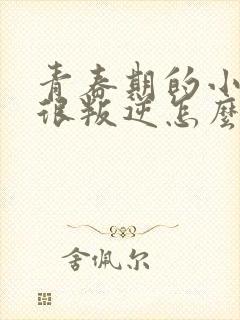 青春期的小
很叛逆怎麼
舍佩尔